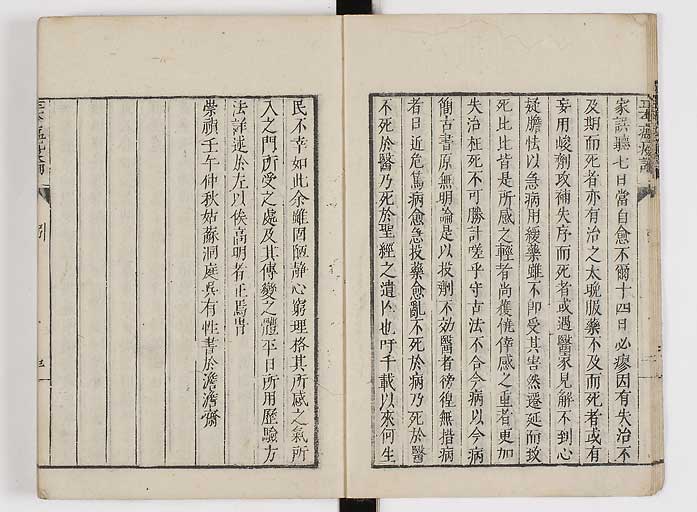 家誤聽七日當自愈不爾十四日必瘳因有失治不
及期而死者亦有治之太晚服藥不及而死者或有
妄用峻劑攻補失序而死者或遇醫家見解不到心
疑膽怯以急病用緩藥雖不即受其害然遷延而致
死比比皆是所感之輕者尚獲僥倖感之重者更加
失治枉死不可勝計嗟乎守古法不合今病以今病
簡古書原無明論是以投劑不効醫者徬徨無措病
者日近危篤病愈急投藥愈亂不死於病乃死於醫
不死於醫乃死於聖經之遺亾也吁千載以來何生
民不幸如此余雖固陋靜心窮理格其所感之氣所
入之門所受之處及其傳變之體平日所用歷驗方
法詳述於左以俟高明者正焉旹
崇禎壬午仲秋姑蘇洞庭吳有性書於澹澹齋
引